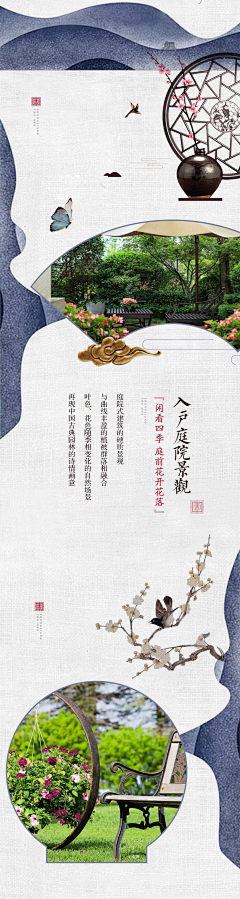 入戸庭院景觀
『闲看四季 庭前花开花落』
庭院式建筑的硬质景观
与曲线丰盈的植被群落相融合
叶色、花色随季相变化的自然场景
再现中国古典园林的诗情画意